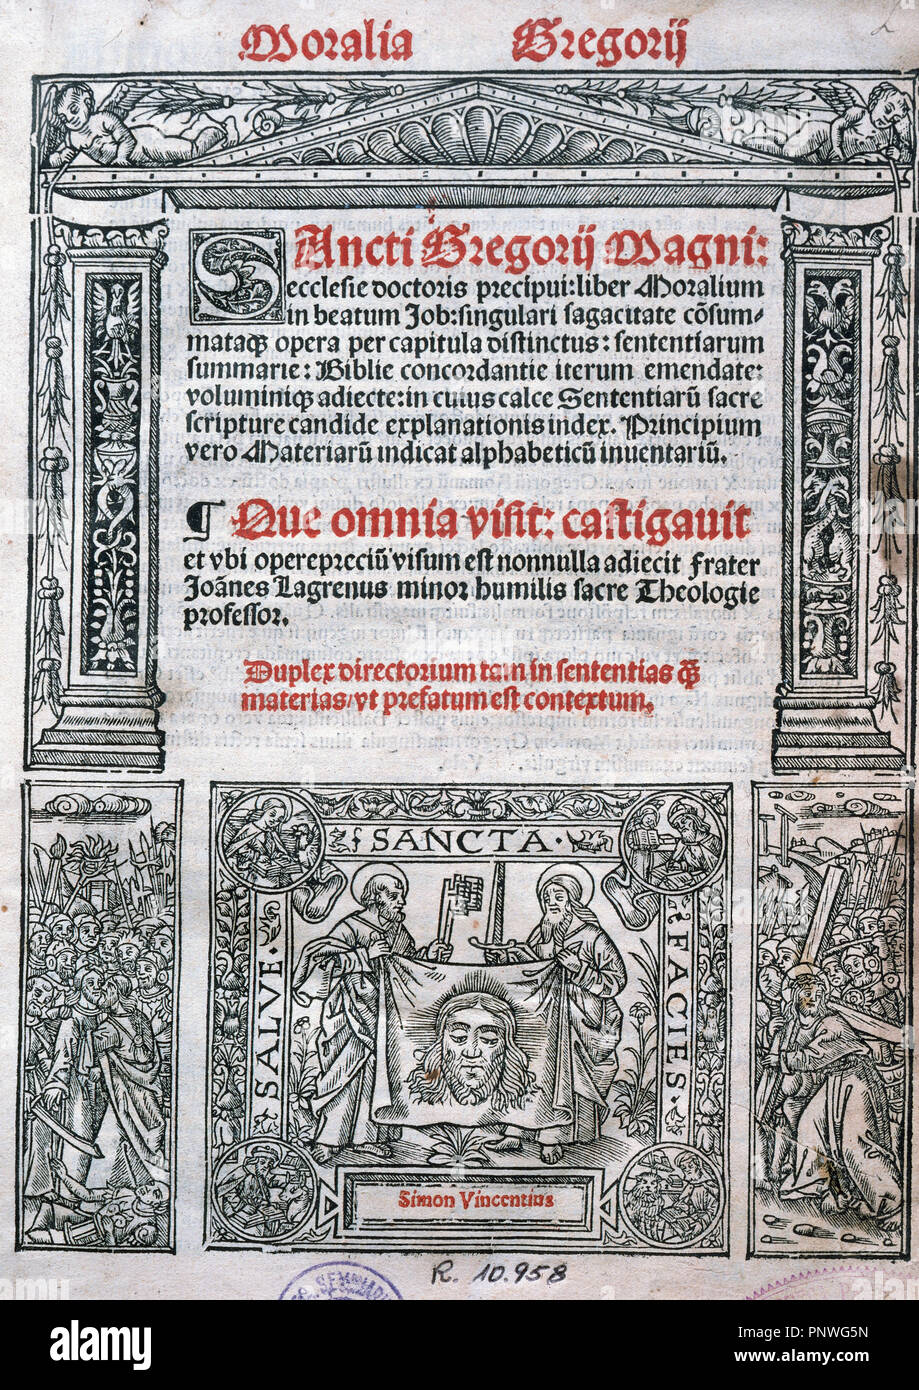 Moralia Gregorij
SAncti Gregorij Magni:
ecclesie doctoris precipui: liber Moralium
in beatum Job: singulari sagacitate cõsum-
mataqꝫ opera per capitula distinctus: sententiarum
summarie: Biblie concordantie iterum emendate:
voluminiqꝫ adiecte: in cuius calce Sententiarũ sacre
scripture candide explanationis index. Principium
vero Materiarũ indicat alphabeticũ inuentariũ.
¶ Que omnia visit: castigauit
et vbi operepreciũ visum est nonnulla adiecit frater
Joãnes Lagrenus minor humilis sacre Theologie
professor.
Duplex directorium tam in sententias qꝫ
materias/ vt prefatum est contextum.
SANCTA
SALVE
FACIES
Simon Vincentius
R. 10.958
a alamy stock photo
alamy
Image ID: PNWG5N
www.alamy.com